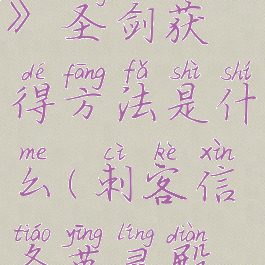 》圣剑获
dé fāng fǎ shì shí
得方法是什
me cì kè xìn
么(刺客信
tiáo yīng líng diàn
条英灵殿